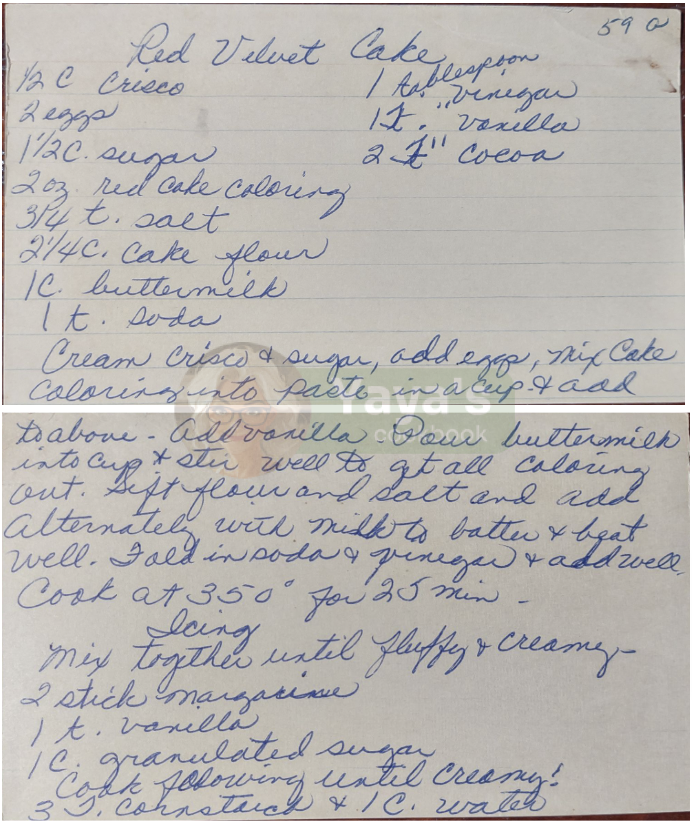 59 a
Red Velvet Cake
1/2 C Crisco
2 eggs
1 1/2 C. sugar
2 oz. red cake coloring
3/4 t. salt
2 1/4 C. Cake flour
1 C. buttermilk
1 t. soda
1 tablespoon
" vinegar
1 t. " vanilla
2 T " Cocoa
Cream Crisco & sugar, add eggs, mix Cake
Coloring into paste in a cup & add
Yaya's
cookbook
to above - Add vanilla Pour buttermilk
into cup & stir well to get all coloring
out. Sift flour and salt and add
Alternately with milk to batter & beat
well. Fold in soda & vinegar & add well.
Cook at 350° for 25 min -
Icing
Mix together until fluffy & creamy -
2 stick margarine
1 t. vanilla
1 C. granulated sugar
Cook folowing until creamy!
3 T. cornstarch & 1 C. water